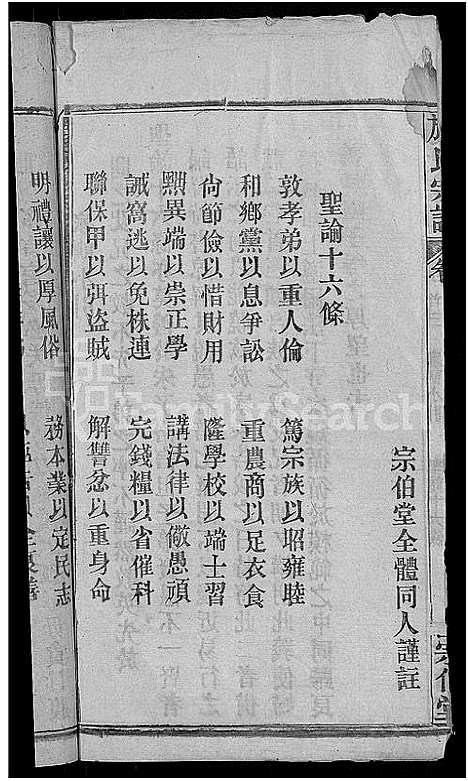 聖諭十六條
宗伯堂全體同人謹註
敦孝弟以重人倫 篤宗族以昭雍睦
和鄉黨以息爭訟 重農商以足衣食
尙節儉以惜財用 隆學校以端士習
黜異端以崇正學 講法律以儆愚頑
誡窩逃以免株連 完錢糧以省催科
聯保甲以弭盜賊 解讐忿以重身命
明禮讓以厚風俗 務本業以定民志
氏宗譜
宗伯堂
FamilySearch